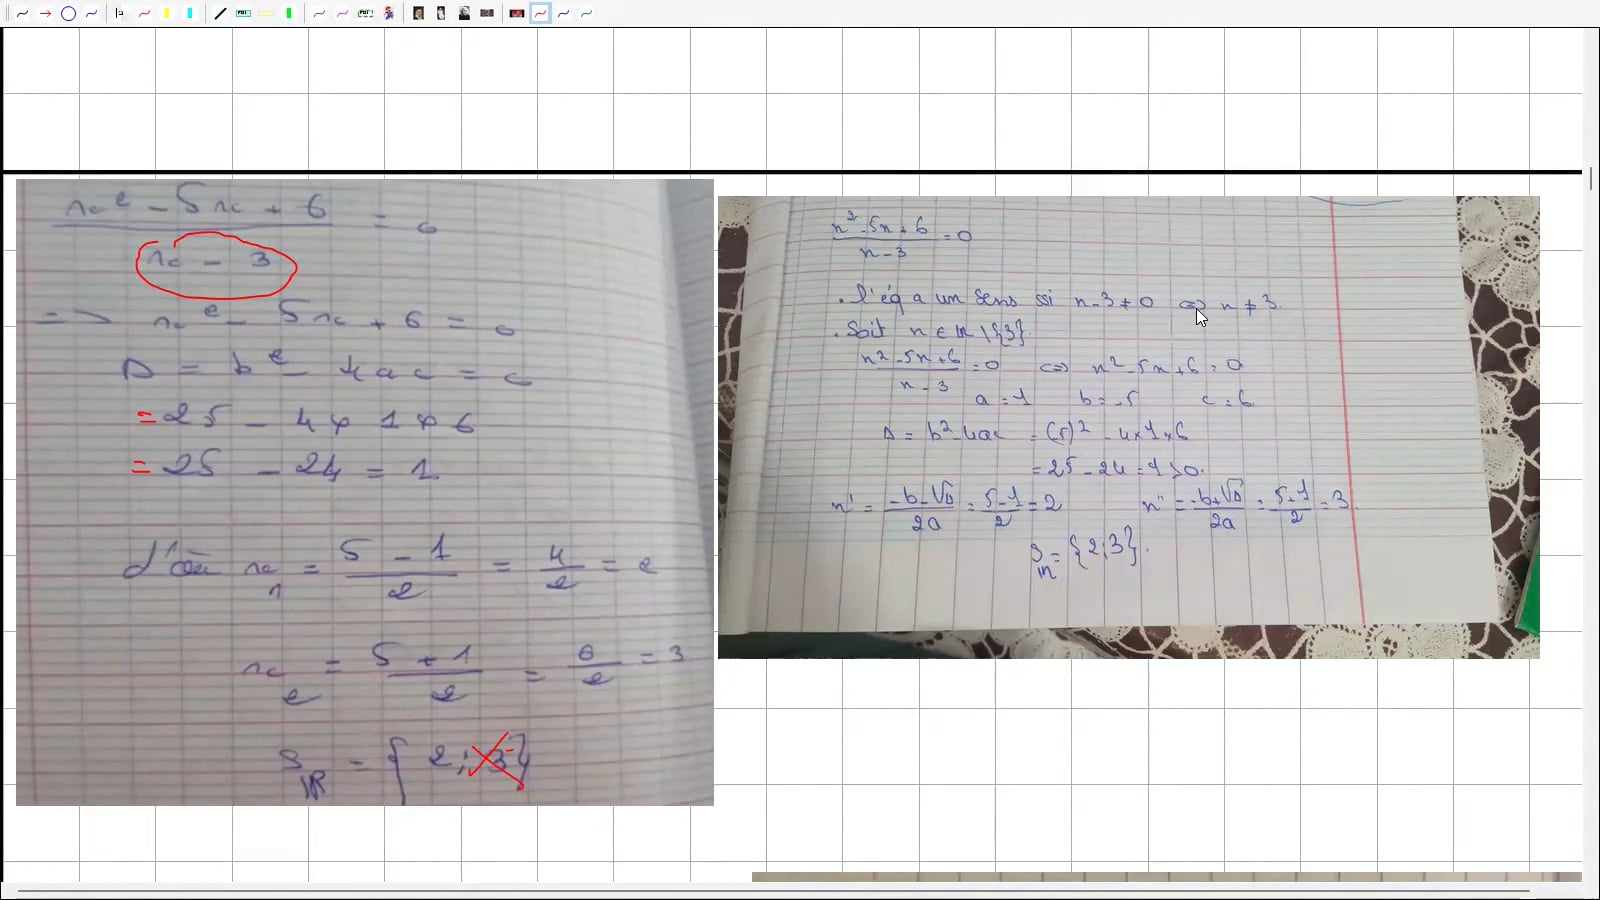 x² - 5x + 6 = 0
x - 3
=> x² - 5x + 6 = 0
Δ = b² - 4ac = c
= 25 - 4 × 1 × 6
= 25 - 24 = 1
d'où x₁ = 5 - 1 / 2 = 4 / 2 = 2
x₂ = 5 + 1 / 2 = 6 / 2 = 3
S IR = { 2 ; 3 }
x² - 5x + 6 = 0
x - 3
. l'éq a un sens ssi x - 3 ≠ 0 <=> x ≠ 3.
. Soit x ∈ IR \ {3}.
x² - 5x + 6 / x - 3 = 0 <=> x² - 5x + 6 = 0
a = 1 b = -5 c = 6
Δ = b² - 4ac = (-5)² - 4 × 1 × 6
= 25 - 24 = 1 > 0.
x' = -b - √Δ / 2a = 5 - 1 / 2 = 2 x'' = -b + √Δ / 2a = 5 + 1 / 2 = 3.
S IR = {2 ; 3}.